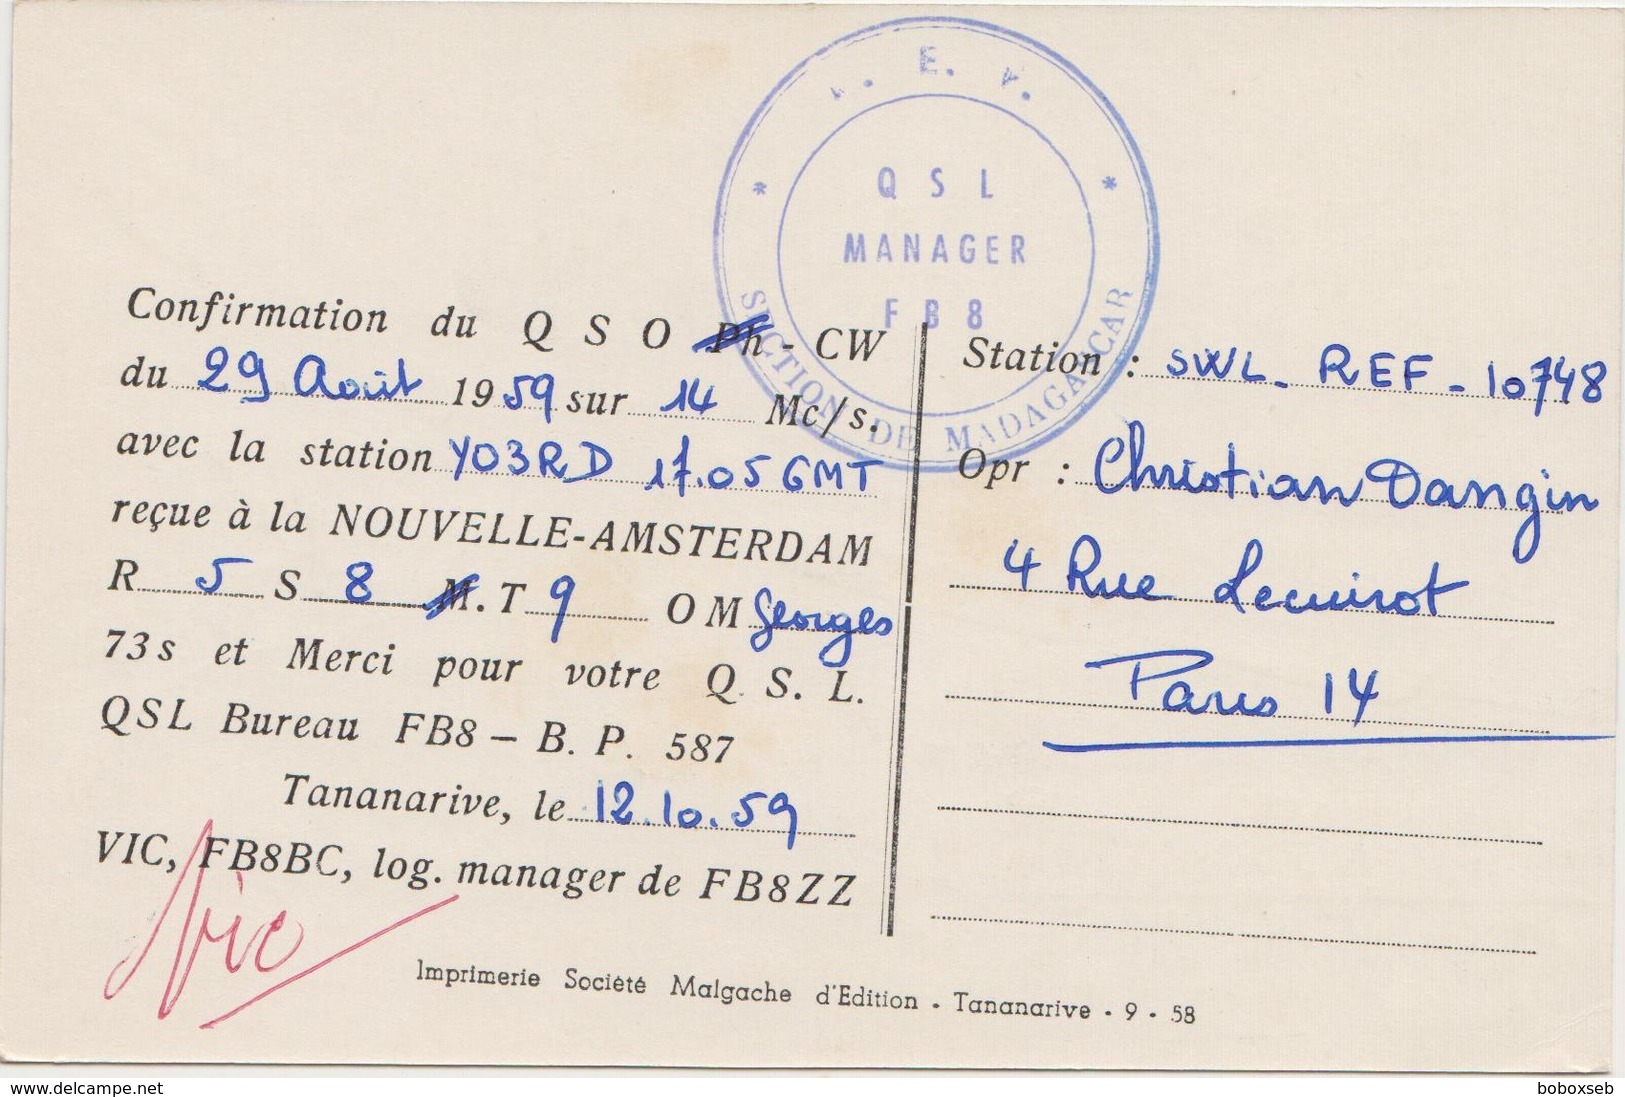 E.
QSL
MANAGER
FB8
SECTION DE MADAGASCAR
Confirmation du Q S O Ph - CW
du 29 Août 1959 sur 14 Mc/s.
avec la station YO3RD 17.05 GMT
reçue à la NOUVELLE-AMSTERDAM
R 5 S 8 M. T 9 OM Georges
73s et Merci pour votre Q. S. L.
QSL Bureau FB8 – B. P. 587
Tananarive, le 12.10.59
VIC, FB8BC, log. manager de FB8ZZ
Vic
Station : SWL - REF - 10748
Opr : Christian Dangin
4 Rue Lecuirot
Paris 14
Imprimerie Société Malgache d'Edition - Tananarive - 9 - 58
www.delcampe.net
boboxseb